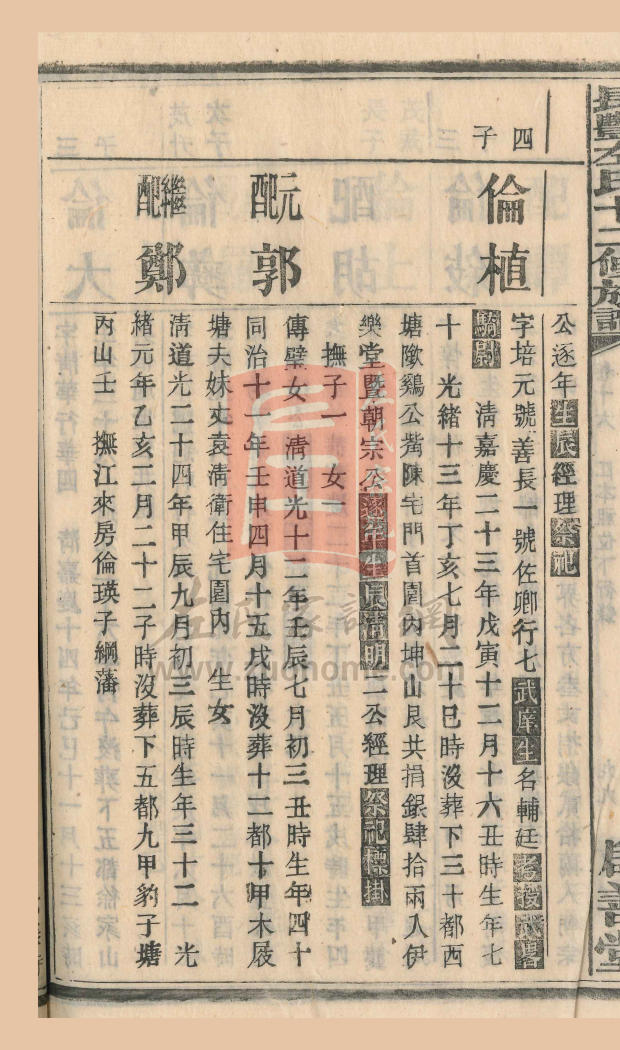 長豐左氏十二修族譜
四子
倫植
元配郭
繼配鄭
公逐年生辰經理祭祀
字培元號善長一號佐卿行七武庠生名輔廷
騎尉 清嘉慶二十三年戊寅十二月十六丑時生年七
十 光緒十三年丁亥七月二十巳時沒葬下三十都西
塘隞鷄公嘴陳宅門首園內坤山艮共捐銀肆拾兩入伊
樂堂暨朝宗公逐年生辰清明二公經理祭祀標掛
撫子一 女一
傳璧女 清道光十二年壬辰七月初三丑時生年四十
同治十一年壬申四月十五戌時沒葬十二都十甲木屐
塘夫妹丈袁清衛住宅園內 生女
清道光二十四年甲辰九月初三辰時生年三十二 光
緒元年乙亥二月二十二子時沒葬下五都九甲豹子塘
丙山壬 撫江來房倫瑛子綱藩
左氏家譜網